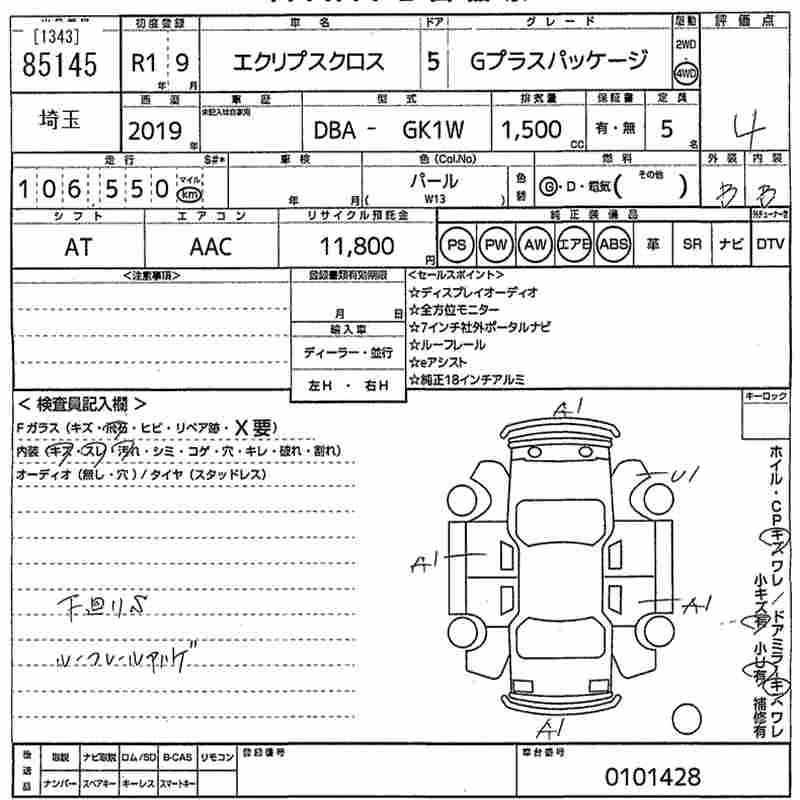 [1343]
85145
初度登録
R1 9
年 月
車名
エクリプスクロス
ドア
5
グレード
Gプラスパッケージ
駆動
2WD
4WD
評価点
4
埼玉
西暦
2019
年
車歴
未記入は自家用
型式
DBA - GK1W
排気量
1,500
CC
保証書
有・無
定員
5
名
走行
106,550
S#*
マイル
km
車検
年 月
色(Col.No)
パール
( W13 )
色替
燃料
G・D・電気( その他 )
外装
B
内装
B
シフト
AT
エアコン
AAC
リサイクル預託金
11,800
円
純正装備品
PS PW AW エアB ABS 革 SR ナビ
DTV
<注意事項>
登録書類有効期限
月 日
輸入車
ディーラー・並行
左H ・ 右H
<セールスポイント>
☆ディスプレイオーディオ
☆全方位モニター
☆7インチ社外ポータルナビ
☆ルーフレール
☆eアシスト
☆純正18インチアルミ
< 検査員記入欄 >
Fガラス(キズ・飛石・ヒビ・リペア跡・X要)
内装(キズ・スレ・汚れ・シミ・コゲ・穴・キレ・破れ・割れ)
オーディオ(無し・穴)/タイヤ(スタッドレス)
下回りS
キーロック
A1
U1
A1
A1
A1
ホイル・CPキズワレ/ドアミラーキズワレ
小キズ有 小U有 補修有
後送品
取説 ナビ取説 ロム/SD B-CAS リモコン
ナンバー スペアキー キーレス スマートキー
登録番号
車台番号
0101428